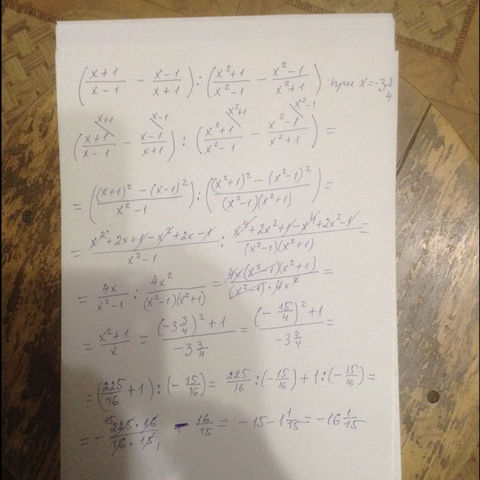 ((x+1)/(x-1) - (x-1)/(x+1)) : ((x²+1)/(x²-1) - (x²-1)/(x²+1)) при x = -3 3/4
((x+1)/(x-1) - (x-1)/(x+1)) : ((x²+1)/(x²-1) - (x²-1)/(x²+1)) =
= (((x+1)² - (x-1)²)/(x²-1)) : (((x²+1)² - (x²-1)²)/((x²-1)(x²+1))) =
= (x²+2x+1-x²+2x-1)/(x²-1) : (x⁴+2x²+1-x⁴+2x²-1)/((x²-1)(x²+1)) =
= 4x/(x²-1) : 4x²/((x²-1)(x²+1)) = (4x(x²-1)(x²+1))/((x²-1)·4x²) =
= (x²+1)/x = ((-3 3/4)²+1)/(-3 3/4) = ((-15/4)²+1)/(-3 3/4) =
= (225/16 + 1) : (-15/16) = 225/16 : (-15/16) + 1 : (-15/16) =
= - (225·16)/(16·15) - 16/15 = -15 - 1 1/15 = -16 1/15